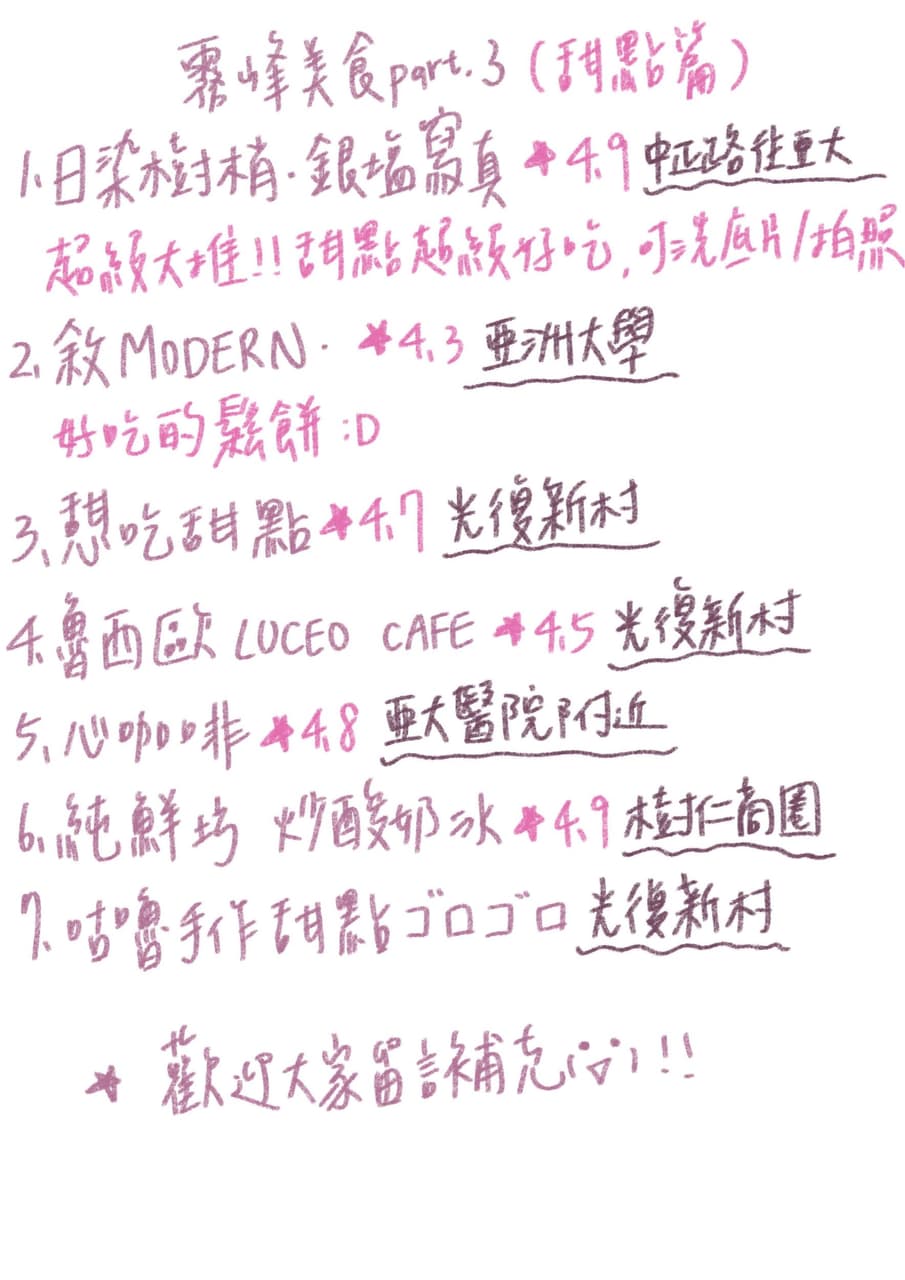 霧峰美食part.3(甜點篇)
1.日染樹梢.銀塩寫真 ★4.9 中正路往亞大
超級大推!!甜點超級好吃,可洗底片/拍照
2.敘MODERN. ★4.3 亞洲大學
好吃的鬆餅:D
3.想吃甜點★4.7 光復新村
4.魯西歐 LUCEO CAFE ★4.5 光復新村
5.心咖啡★4.8 亞大醫院附近
6.純鮮坊 炒酸奶冰★4.9 樹仁商圈
7.咕嚕手作甜點ゴロゴロ 光復新村
★ 歡迎大家留言補充(:▽:)!!